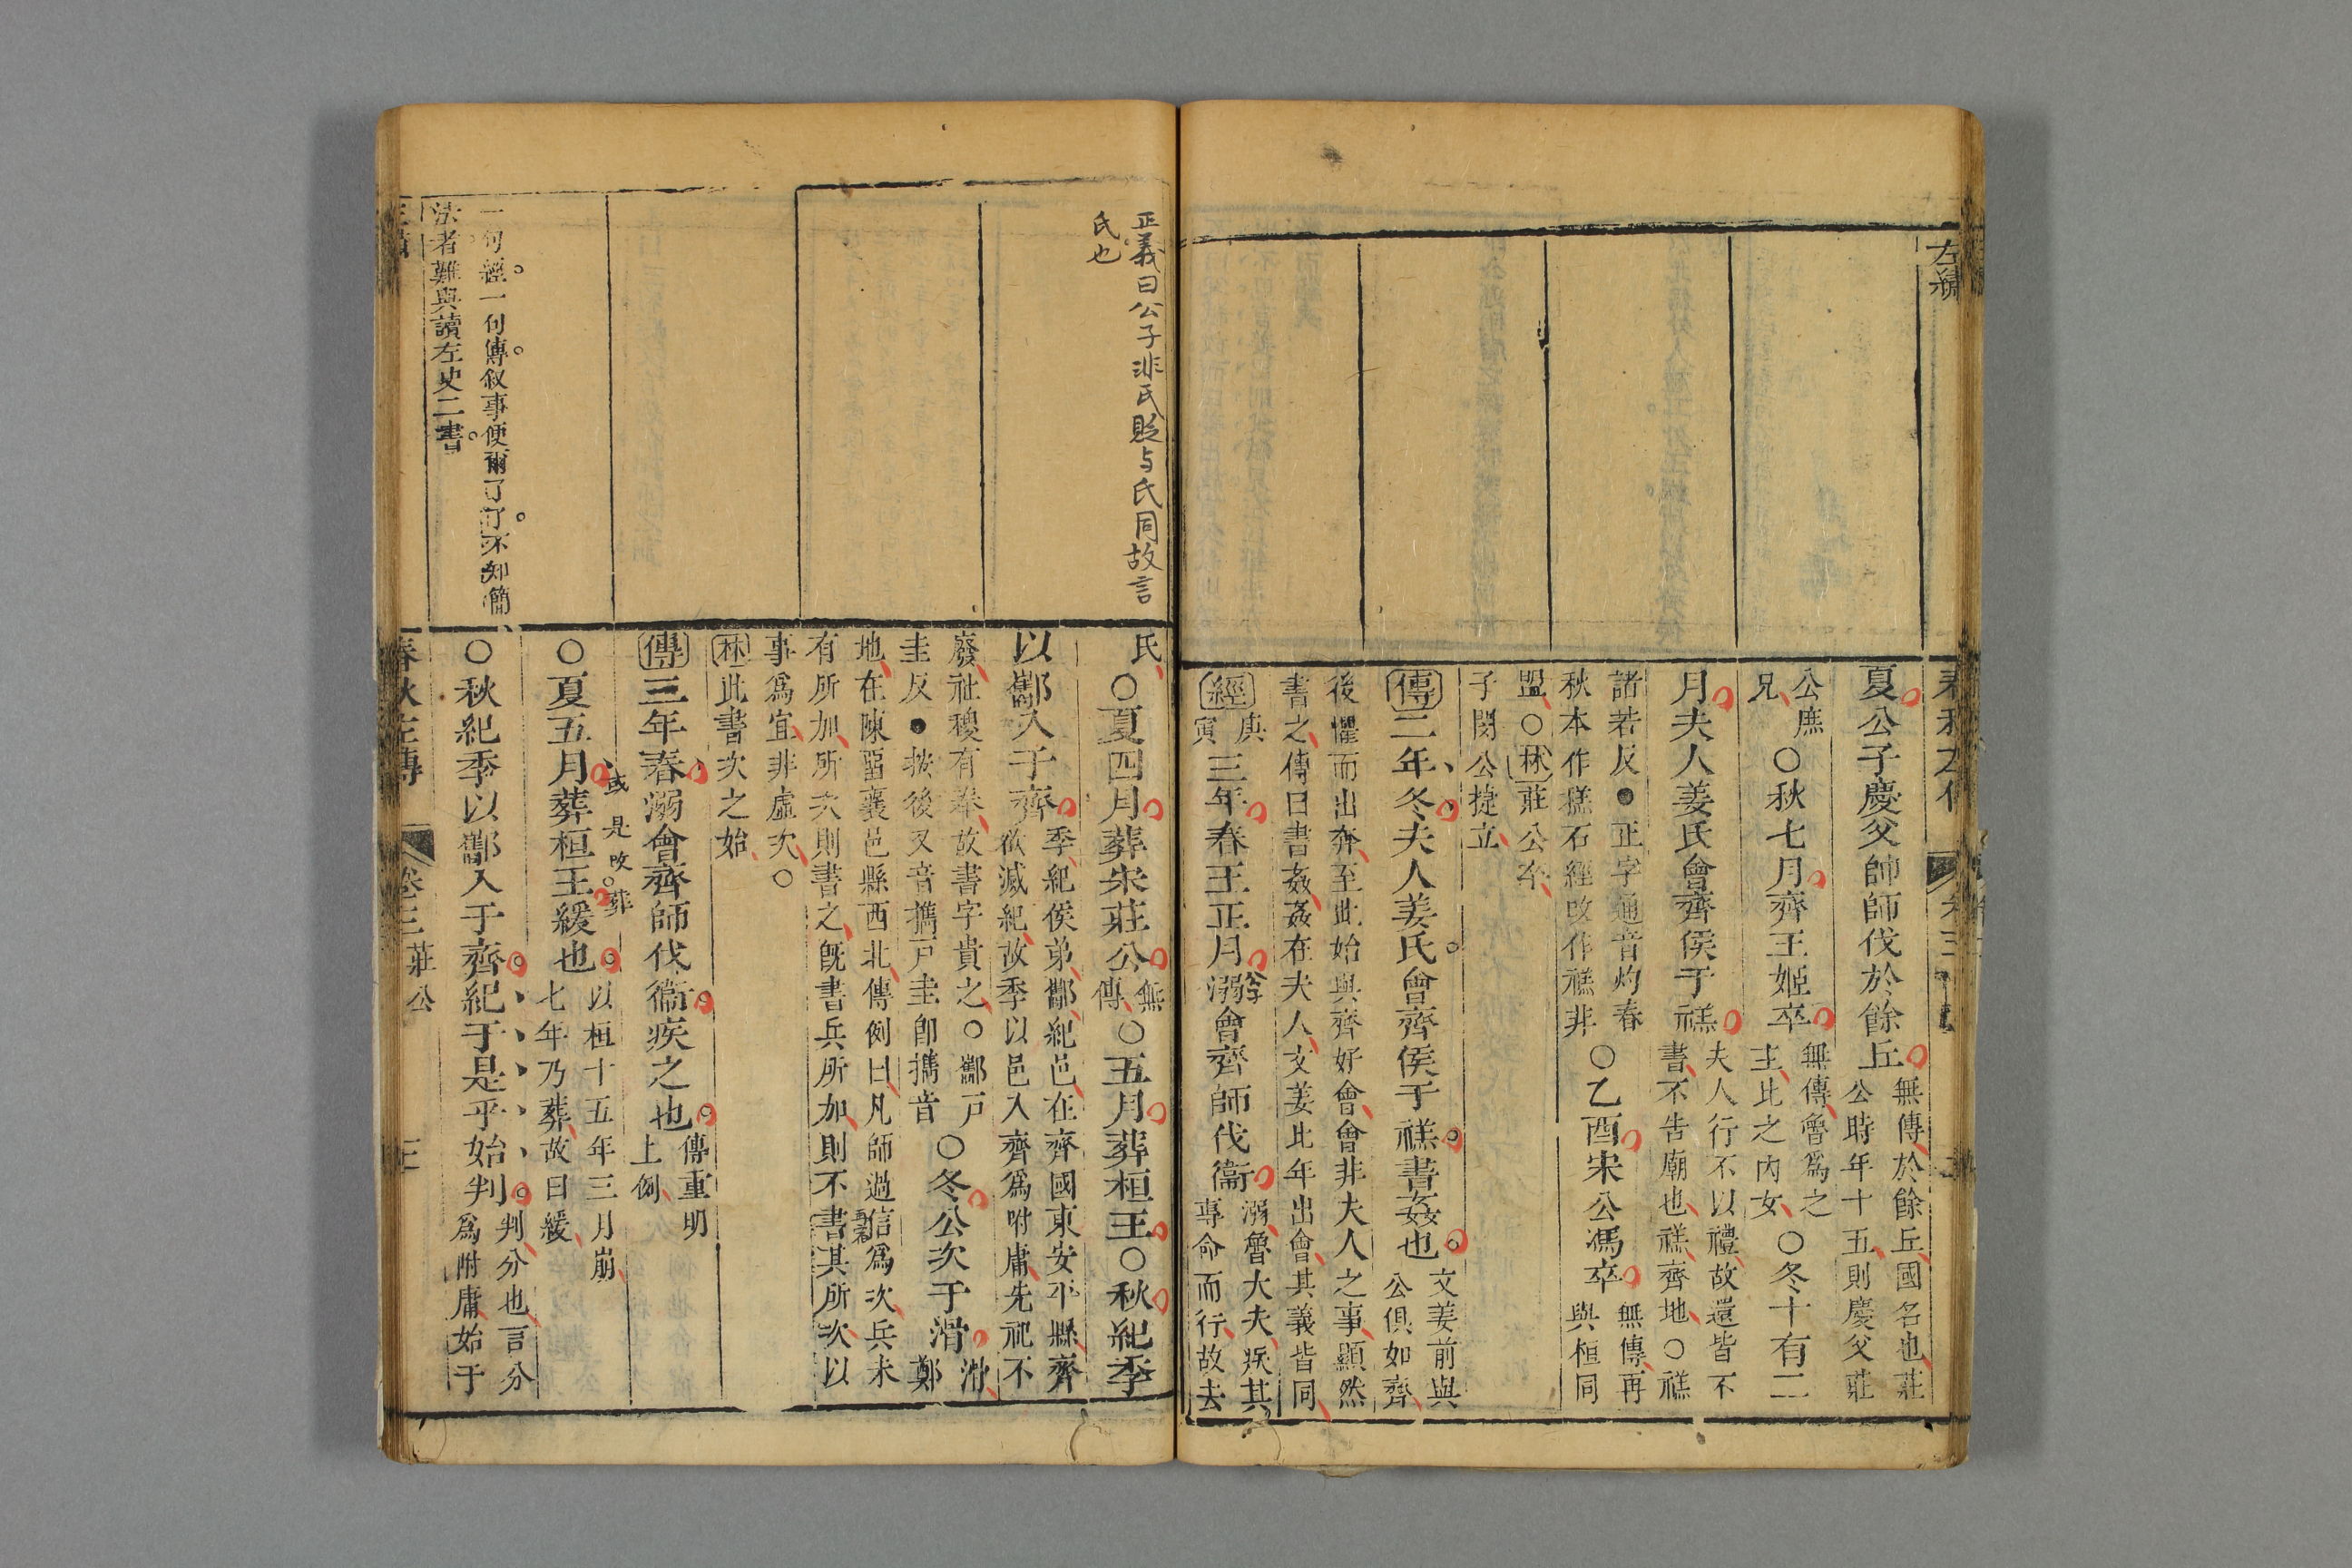 左繡
夏公子慶父帥師伐於餘丘
無傳於餘丘國名也莊
公時年十五則慶父莊
公庶
兄
○秋七月齊王姬卒
無傳魯爲之
主比之内女
○冬十有二
月夫人姜氏會齊侯于禚
夫人行不以禮故還皆不
書不告廟也禚齊地○禚
諸若反●正字通音灼春
秋本作禚石經改作禚非
○乙酉宋公馮卒
無傳再
與桓同
盟○林莊公卒
子閔公捷立
傳二年冬夫人姜氏會齊侯于禚書姦也
文姜前與
公俱如齊
後懼而出奔至此始與齊好會會非夫人之事顯然
書之傳曰書姦姦在夫人文姜比年出會其義皆同
經
庚
寅
三年春王正月溺會齊師伐衞
溺魯大夫疾其
專命而行故去
正義曰公子非氏貶与氏同故言
氏也
氏○夏四月葬宋莊公
無
傳
○五月葬桓王○秋紀季
以酅入于齊
季紀侯弟酅紀邑在齊國東安平縣齊
欲滅紀故季以邑入齊爲附庸先祀不
廢社稷有奉故書字貴之○酅戸
圭反●按後又音攜戸圭卽攜音
○冬公次于滑
滑鄭
地在陳留襄邑縣西北傳例曰凡師過信爲次兵未
有所加所次則書之旣書兵所加則不書其所次以
事爲宜非虛次○
林此書次之始
傳三年春溺會齊師伐衞疾之也
傳重明
上例
或是改葬
○夏五月葬桓王緩也
以桓十五年三月崩
七年乃葬故曰緩
○秋紀季以酅入于齊紀于是乎始判
判分也言分
爲附庸始于
一句經一句傳叙事便爾了了不知簡
法者難與讀左史二書
春秋左傳
卷三
莊公
三